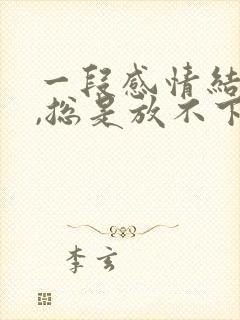 一段感情结
,总是放不下
李玄